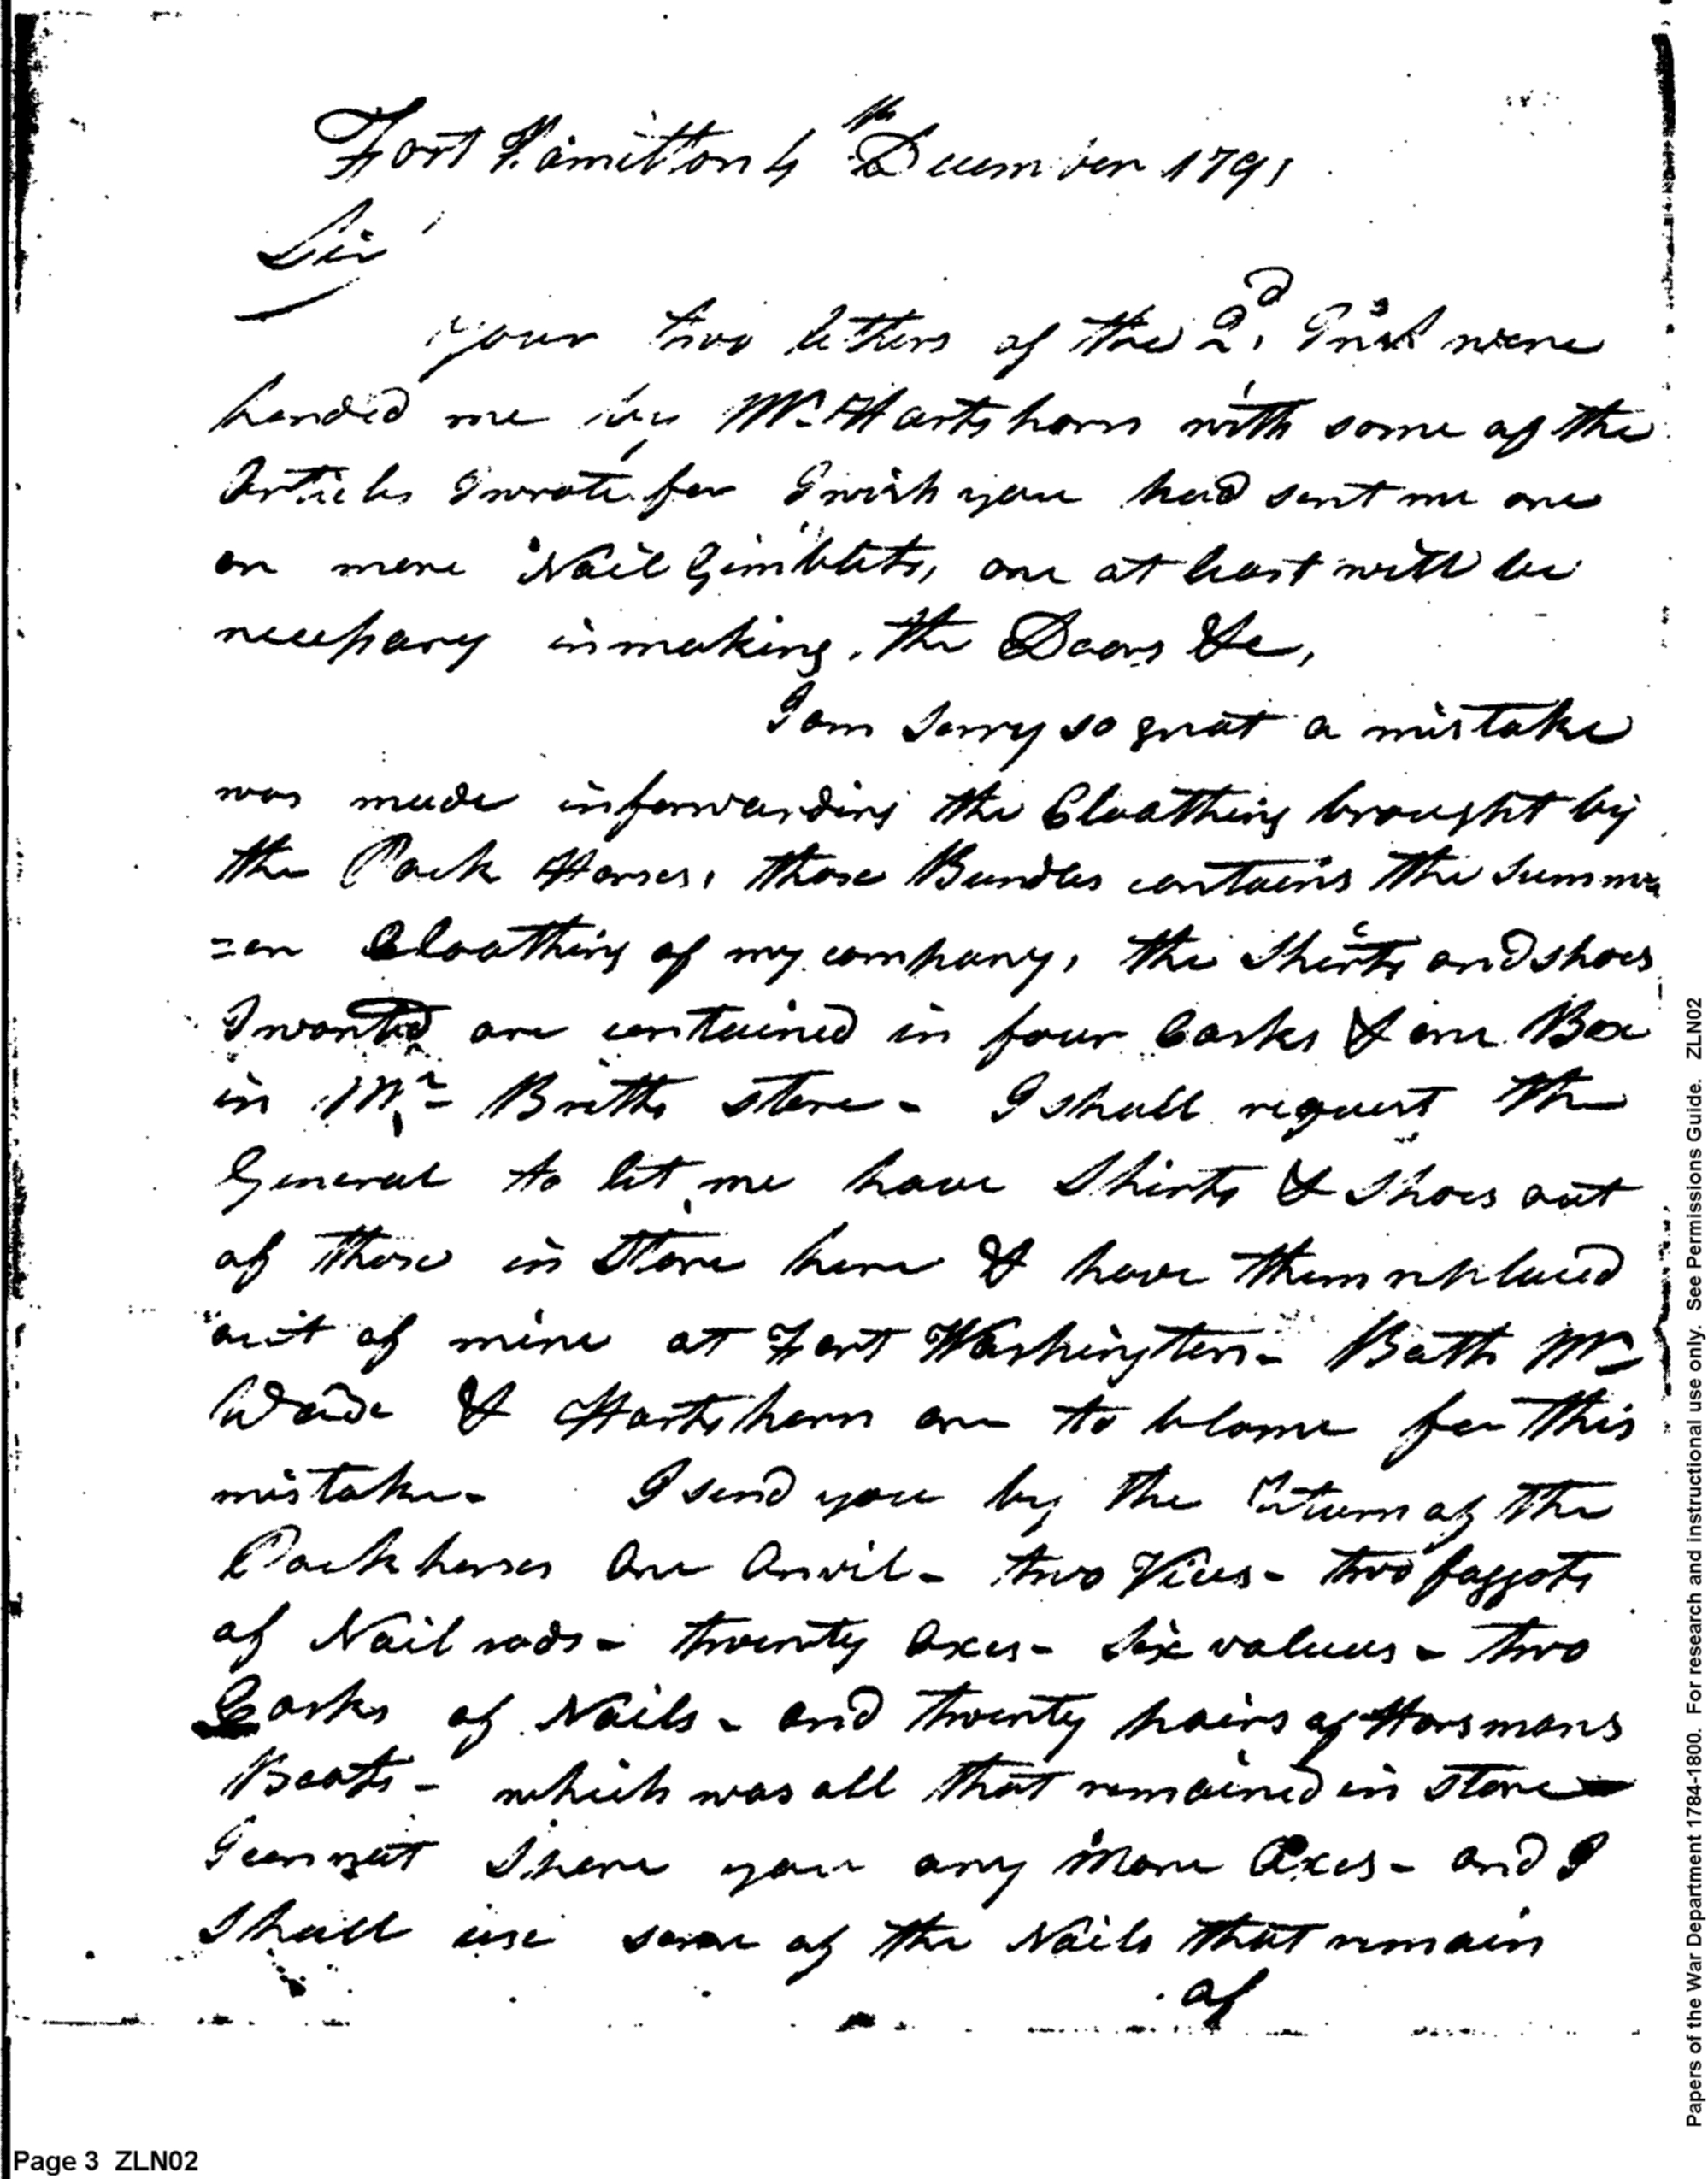 Fort Hamilton 4th December 1791
Sir
your two letters of the 2d. Inst were
handed me by Mr. Hartshorn with some of the
Articles I wrote for I wish you had sent me one
or more Nail Gimblets, one at least will be
necessary in making the Doors &c,
I am sorry so great a mistake
was made in forwarding the Cloathing brought by
the Pack Horses, those Bundles contains the Summ
=er Cloathing of my company, the Shirts and shoes
I wanted are contained in four Casks & one Box
in Mr. Britts store - I shall request the
General to let me have Shirts & Shoes out
of those in Store here & have them replaced
out of mine at Fort Washington - Both Mr
Wade & Hartshorn are to blame for this
mistake - I send you by the return of the
Packhorses One Anvil - two Vices - two faggots
of Nail rods - twenty Axes - Six valices - two
Casks of Nails - and twenty pairs of Horsmans
Boots - which was all that remained in Store
I can not Spare you any More Axes - and I
Shall use some of the Nails that remain
of
Page 3 ZLN02
Papers of the War Department 1784-1800. For research and instructional use only. See Permissions Guide. ZLN02